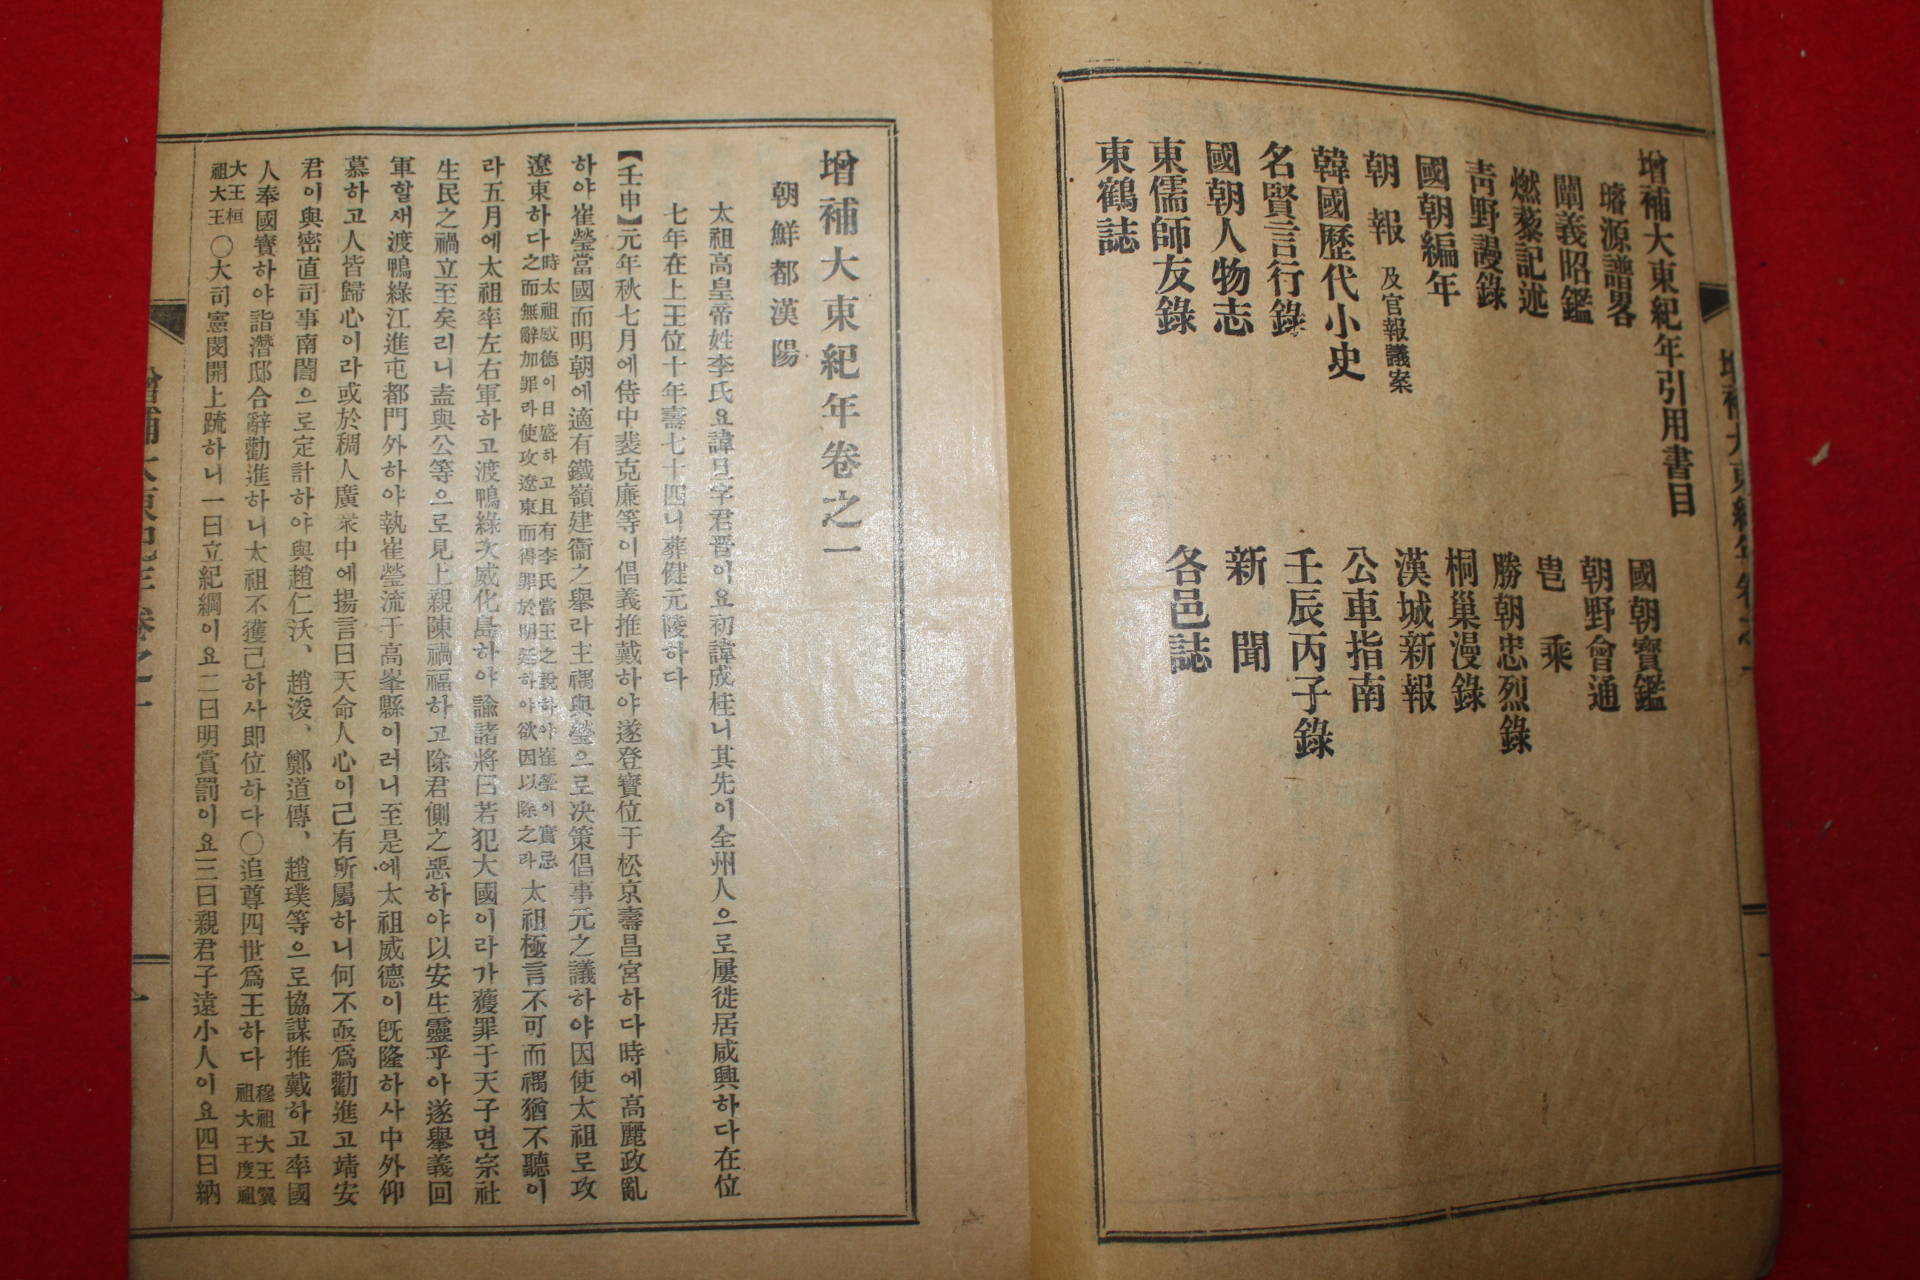 增補大東紀年引用書目
璿源譜畧
國朝寶鑑
闡義昭鑑
朝野會通
燃藜記述
皀乘
靑野謾錄
勝朝忠烈錄
國朝編年
桐巢漫錄
朝報 及官報議案
漢城新報
韓國歷代小史
公車指南
名賢言行錄
壬辰丙子錄
國朝人物志
新聞
東儒師友錄
各邑誌
東鶴誌
增補大東紀年卷之一
朝鮮都漢陽
太祖高皇帝姓李氏요諱旦字君晋이요初諱成桂니其先이全州人으로屢徙居咸興하다在位
七年在上王位十年壽七十四니葬健元陵하다
【壬申】元年秋七月에侍中裴克廉等이倡義推戴하야遂登寶位于松京壽昌宮하다時에高麗政亂
하야崔瑩當國而明朝에適有鐵嶺建衞之擧라主禑與瑩으로决策倡事元之議하야因使太祖로攻
遼東하다時太祖威德이日盛하고且有李氏當王之說하야崔瑩이實忌之而無辭加罪라使攻遼東而得罪於明廷하야欲因以除之라太祖極言不可而禑猶不聽이
라五月에太祖率左右軍하고渡鴨綠次威化島하야諭諸將曰若犯大國이라가獲罪于天子면宗社
生民之禍立至矣리니盍與公等으로見上親陳禍福하고除君側之惡하야以安生靈乎아遂擧義回
軍할새渡鴨綠江進屯都門外하야執崔瑩流于高峯縣이러니至是에太祖威德이旣隆하사中外仰
慕하고人皆歸心이라或於稠人廣衆中에揚言曰天命人心이已有所屬하니何不亟爲勸進고靖安
君이與密直司事南誾으로定計하야與趙仁沃、趙浚、鄭道傳、趙璞等으로協謀推戴하고率國
人奉國寶하야詣潛邸合辭勸進하니太祖不獲已하사即位하다〇追尊四世爲王하다穆祖大王翼祖大王度祖
大王桓祖大王〇大司憲閔開上疏하니一曰立紀綱이요二曰明賞罰이요三曰親君子遠小人이요四曰納